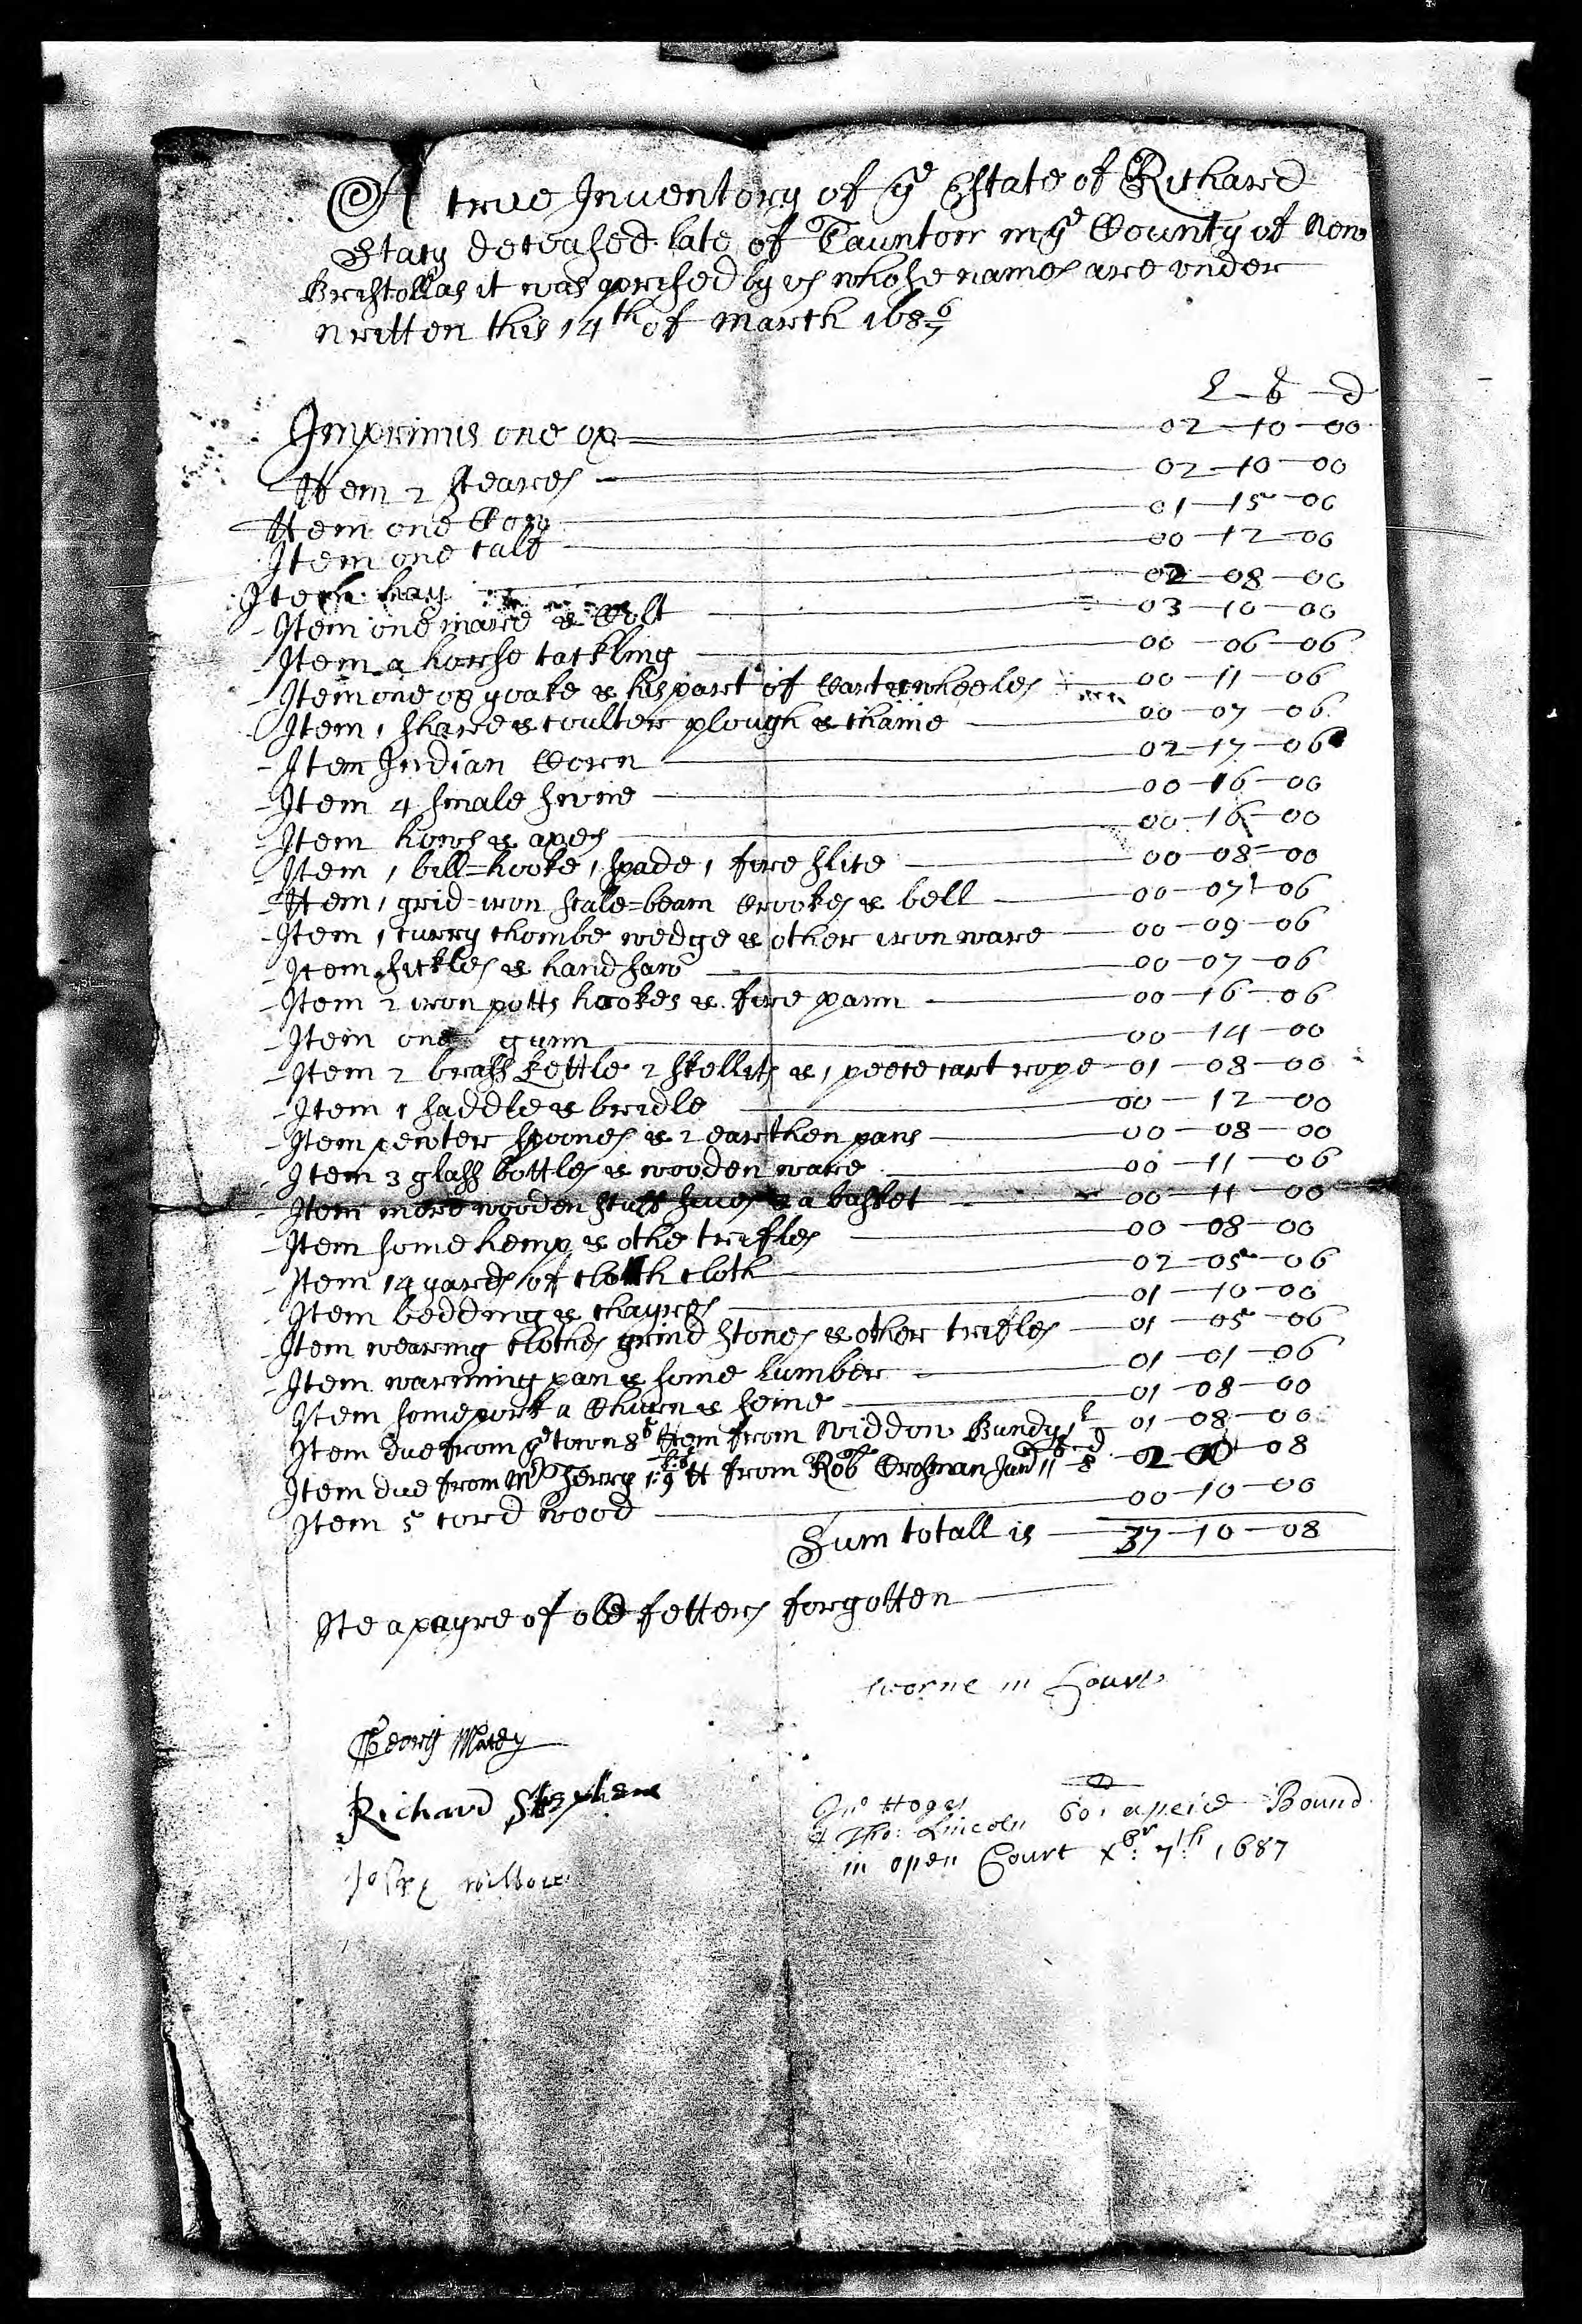 A true Inventory of ye Estate of Richard
Stacy deceased late of Taunton in ye County of New
Bristoll as it was aprised by us whose names are under
written this 14th of March 168 6/7
L - s - d
Imprimis one ox 02 - 10 - 00
Item 2 steares 02 - 10 - 00
Item one Cow 01 - 15 - 00
Item one calf 00 - 12 - 06
Item hay 02 - 08 - 00
Item one mare & Colt 03 - 10 - 00
Item a horse tackling 00 - 06 - 06
Item one ox yoake & his part of Cart & wheeles 00 - 11 - 06
Item 1 share & coulter plough & chaine 00 - 07 - 06
Item Indian Corn 02 - 17 - 06
Item 4 smale swine 00 - 16 - 00
Item hows & axes 00 - 16 - 00
Item 1 bill=hooke 1 spade 1 fire slice 00 - 08 - 00
Item 1 grid-iron scale=beam Crookes & bell 00 - 07 - 06
Item 1 curry chombe wedge & other iron ware 00 - 09 - 06
Item sickles & hand saw 00 - 07 - 06
Item 2 iron potts hookes & fire pann 00 - 16 - 06
Item one gunn 00 - 14 - 00
Item 2 brass kettle 2 skellits & 1 peece cart rope 01 - 08 - 00
Item 1 saddle & bridle 00 - 12 - 00
Item pewter spoones & 2 earthen pans 00 - 08 - 00
Item 3 glass bottles & wooden ware 00 - 11 - 06
Item more wooden stuff sives & a basket 00 - 11 - 00
Item some hemp & othe trifles 00 - 08 - 00
Item 14 yards of cloth cloth 02 - 05 - 06
Item bedding & chayres 01 - 10 - 00
Item wearing clothes grind stones & other trifles 01 - 05 - 06
Item warming pan & some Lumber 01 - 01 - 06
Item some pork a Churn & seine 01 - 08 - 00
Item due from ye town 8s Item from widdow Bundy 1l 01 - 08 - 00
Item due from Mr Sherry 1:9 It from Rob Crosman Jun 11s 8d 02 - 08
Item 5 cord wood 00 - 10 - 00
Sum totall is 37 - 10 - 08
Ite a payre of old fetters forgotten
sworne in Court
Georg Macey
Richard Stephens
Jno Hoges
& Tho: Lincoln 60l apeice Bound
in open Court Xbr: 7th: 1687